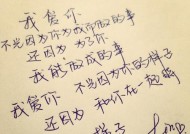 我爱你
不光因为你为我而做的事
还因为 为了你
我能做成的事
我爱你 不光因为你的样子
还因为 和你在一起时
样子